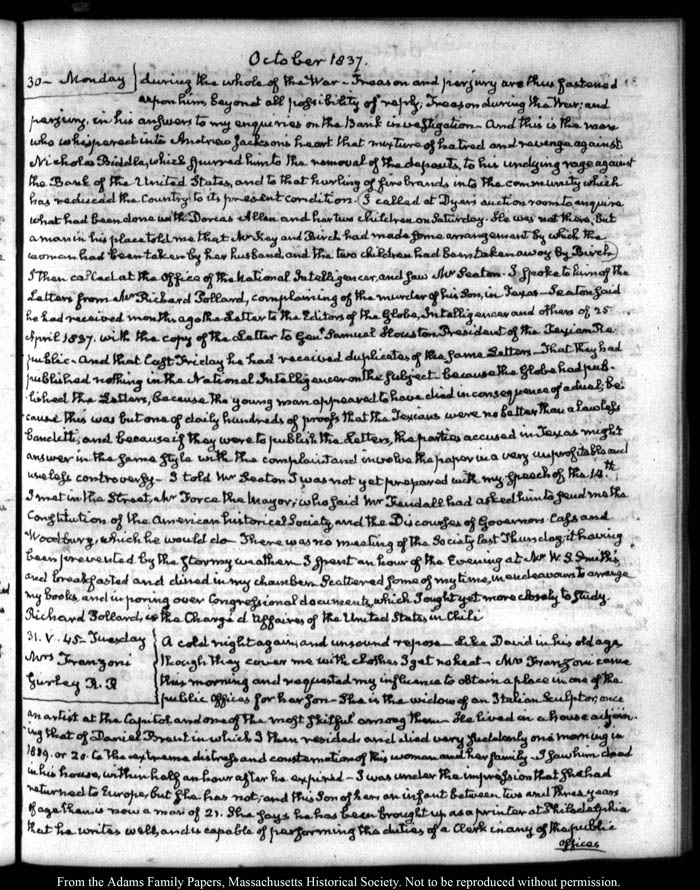 October 1837.
30 – Monday during the whole of the War – Treason and perjury are thus fastened
upon him, beyond all possibility of reply; Treason during the War; and
perjury, in his answers to my enquiries on the Bank investigation – And this is the man
who whispered into Andrew Jackson's heart that mixture of hatred and revenge against
Nicholas Biddle, which spurred him to the removal of the deposits, to his undying rage against
the Bank of the United States, and to that hurling of firebrands into the community which
has reduced the Country to its present condition. (I called at Dyer's auction room to enquire
what had been done with Dorcas Allen and her two children on Saturday. He was not there; but
a man in his place told me that Mr Key and Birch had made some arrangement by which the
woman had been taken by her husband, and the two children had been taken away by Birch)
I then called at the Office of the National Intelligencer, and saw Mr Seaton. I spoke to him of the
Letters from Mr Richard Pollard, complaining of the murder of his Son, in Texas – Seaton said
he had received months ago the Letter to the Editors of the Globe, Intelligencer and others of 25
April 1837. with the copy of the Letter to Genl. Samuel Houston President of the Texian Re
public – And that last Friday he had received duplicates of the same Letters – That they had
published nothing in the National Intelligencer on the subject because the Globe had pub-
lished the Letters, because the young man appeared to have died in consequence of a duel; be-
cause this was but one of daily hundreds of proofs that the Texians were no better than a lawless
banditti, and because if they were to publish the Letters, the parties accused in Texas might
answer in the same style with the complaint and involve the paper in a very unprofitable and
useless controversy – I told Mr Seaton I was not yet prepared with my Speech of the 14th
I met in the Street, Mr Force the Mayor; who said Mr Kendall had asked him to send me the
Constitution of the American historical Society and the Discourses of Governors Cass and
Woodbury, which he would do – There was no meeting of the Society last Thursday, it having
been prevented by the stormy weather. I spent an hour of the Evening at Mr W. S. Smith's,
and breakfasted and dined in my chamber. Scattered some of my time, in endeavours to arrange
my books, and in poring over Congressional documents, which I ought yet more closely to study.
Richard Pollard, is the Chargé d'Affaires of the United States in Chili
31. V. 45 – Tuesday A cold night again, and unsound repose – Like David in his old age,
Mrs Franzoni though they cover me with clothes I get no heat – Mrs Franzoni came
Gurley R. R this morning and requested my influence to obtain a place in one of the
public offices for her Son – She is the widow of an Italian Sculptor, once
an artist at the Capitol, and one of the most skilful among them – He lived in a house adjoin-
ing that of Daniel Brent in which I then resided and died very suddenly one morning in
1819. or 20. to the extreme distress and consternation of this woman and her family – I saw him dead
in his house, within half an hour after he expired – I was under the impression that she had
returned to Europe, but she has not; and this Son of hers an infant between two and three years
of age then is now a man of 21. She says he has been brought up as a printer at Philadelphia
that he writes well, and is capable of performing the duties of a Clerk in any of the public
offices
From the Adams Family Papers, Massachusetts Historical Society. Not to be reproduced without permission.